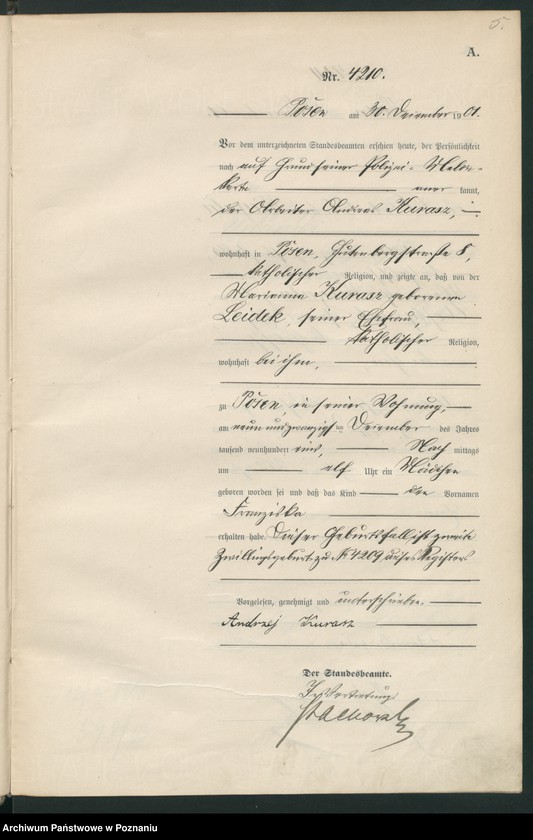 5.
A.
Nr. 4210.
Posen am 30. Dezember 1901.
Vor dem unterzeichneten Standesbeamten erschien heute, der Persönlichkeit
nach auf Grund seiner Polizei-Melde-
karte aner kannt,
der Arbeiter Andreas Kurasz,
wohnhaft in Posen, Gutenbergstraße 8,
katholischer Religion, und zeigte an, daß von der
Marianna Kurasz geborenen
Leidek, seiner Ehefrau,
katholischer Religion,
wohnhaft bei ihm,
zu Posen, in seiner Wohnung,
am neunundzwanzigsten Dezember des Jahres
tausend neunhundert eins, Nach mittags
um elf Uhr ein Mädchen
geboren worden sei und daß das Kind den Vornamen
Franziska
erhalten habe. Dieser Geburtsfall ist zweite
Zwillingsgeburt zu Nr 4209 dieses Registers
Vorgelesen, genehmigt und unterschrieben.
Andrzej Kurasz
Der Standesbeamte.
In Vertretung
Archiwum Państwowe w Poznaniu